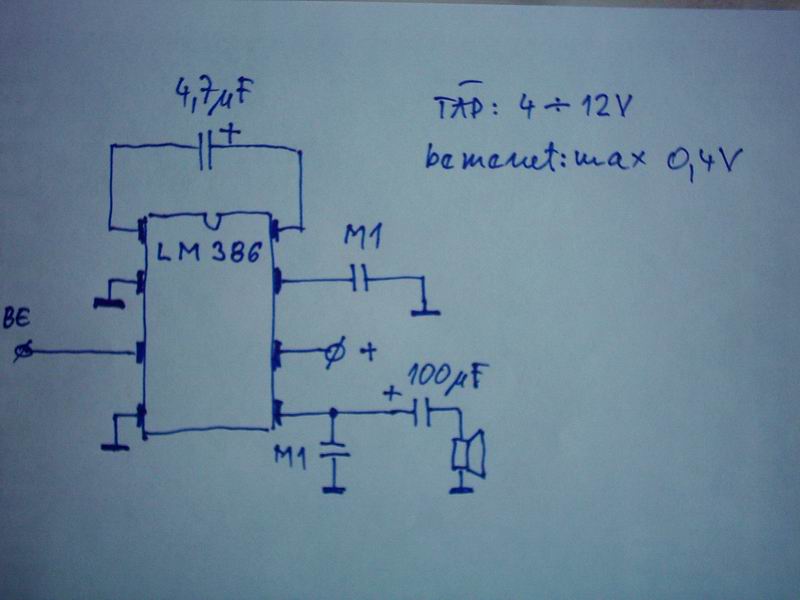 4,7µF
+
TÁP: 4 ÷ 12V
bemenet: max 0,4V
LM 386
M1
BE
+
100µF
+
M1